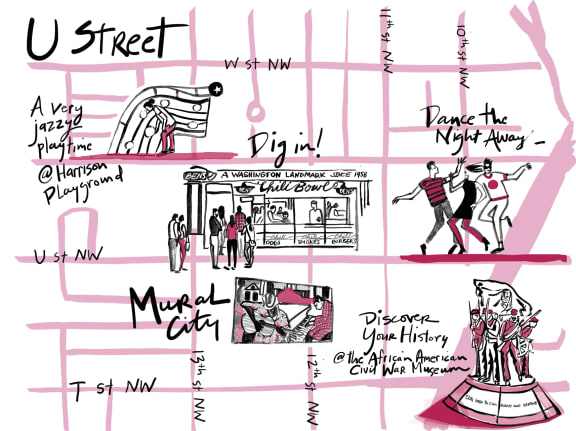 U STREET
W ST NW
11th ST NW
10th ST NW
A very
jazzy
playtime
@Harrison
Playground
Dig in!
Dance the
Night Away!
BEN'S
A WASHINGTON LANDMARK SINCE 1958
Chili Bowl
SMOKES
BURGERS
U ST NW
MURAL
CITY
Discover
Your History
@the African American
Civil War Museum
T ST NW
13th ST NW
12th ST NW